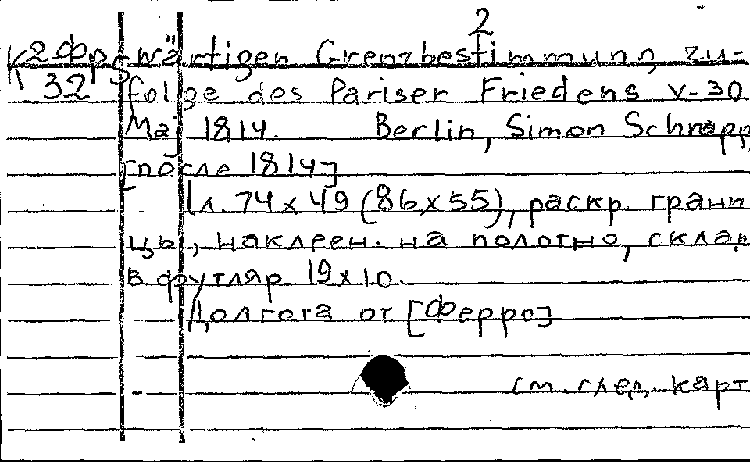 2
К 2 Фр 5 wärtigen Grenzbestimmung, zu-
32 folge des Pariser Friedens v. 30
Mai 1814. Berlin, Simon Schropp,
[после 1814]
1 л. 74 x 49 (86 x 55), раскр. грани
цы, наклеен. на полотно, склад.
в футляр 19 x 10.
Долгота от [Ферро]
см. след. карт